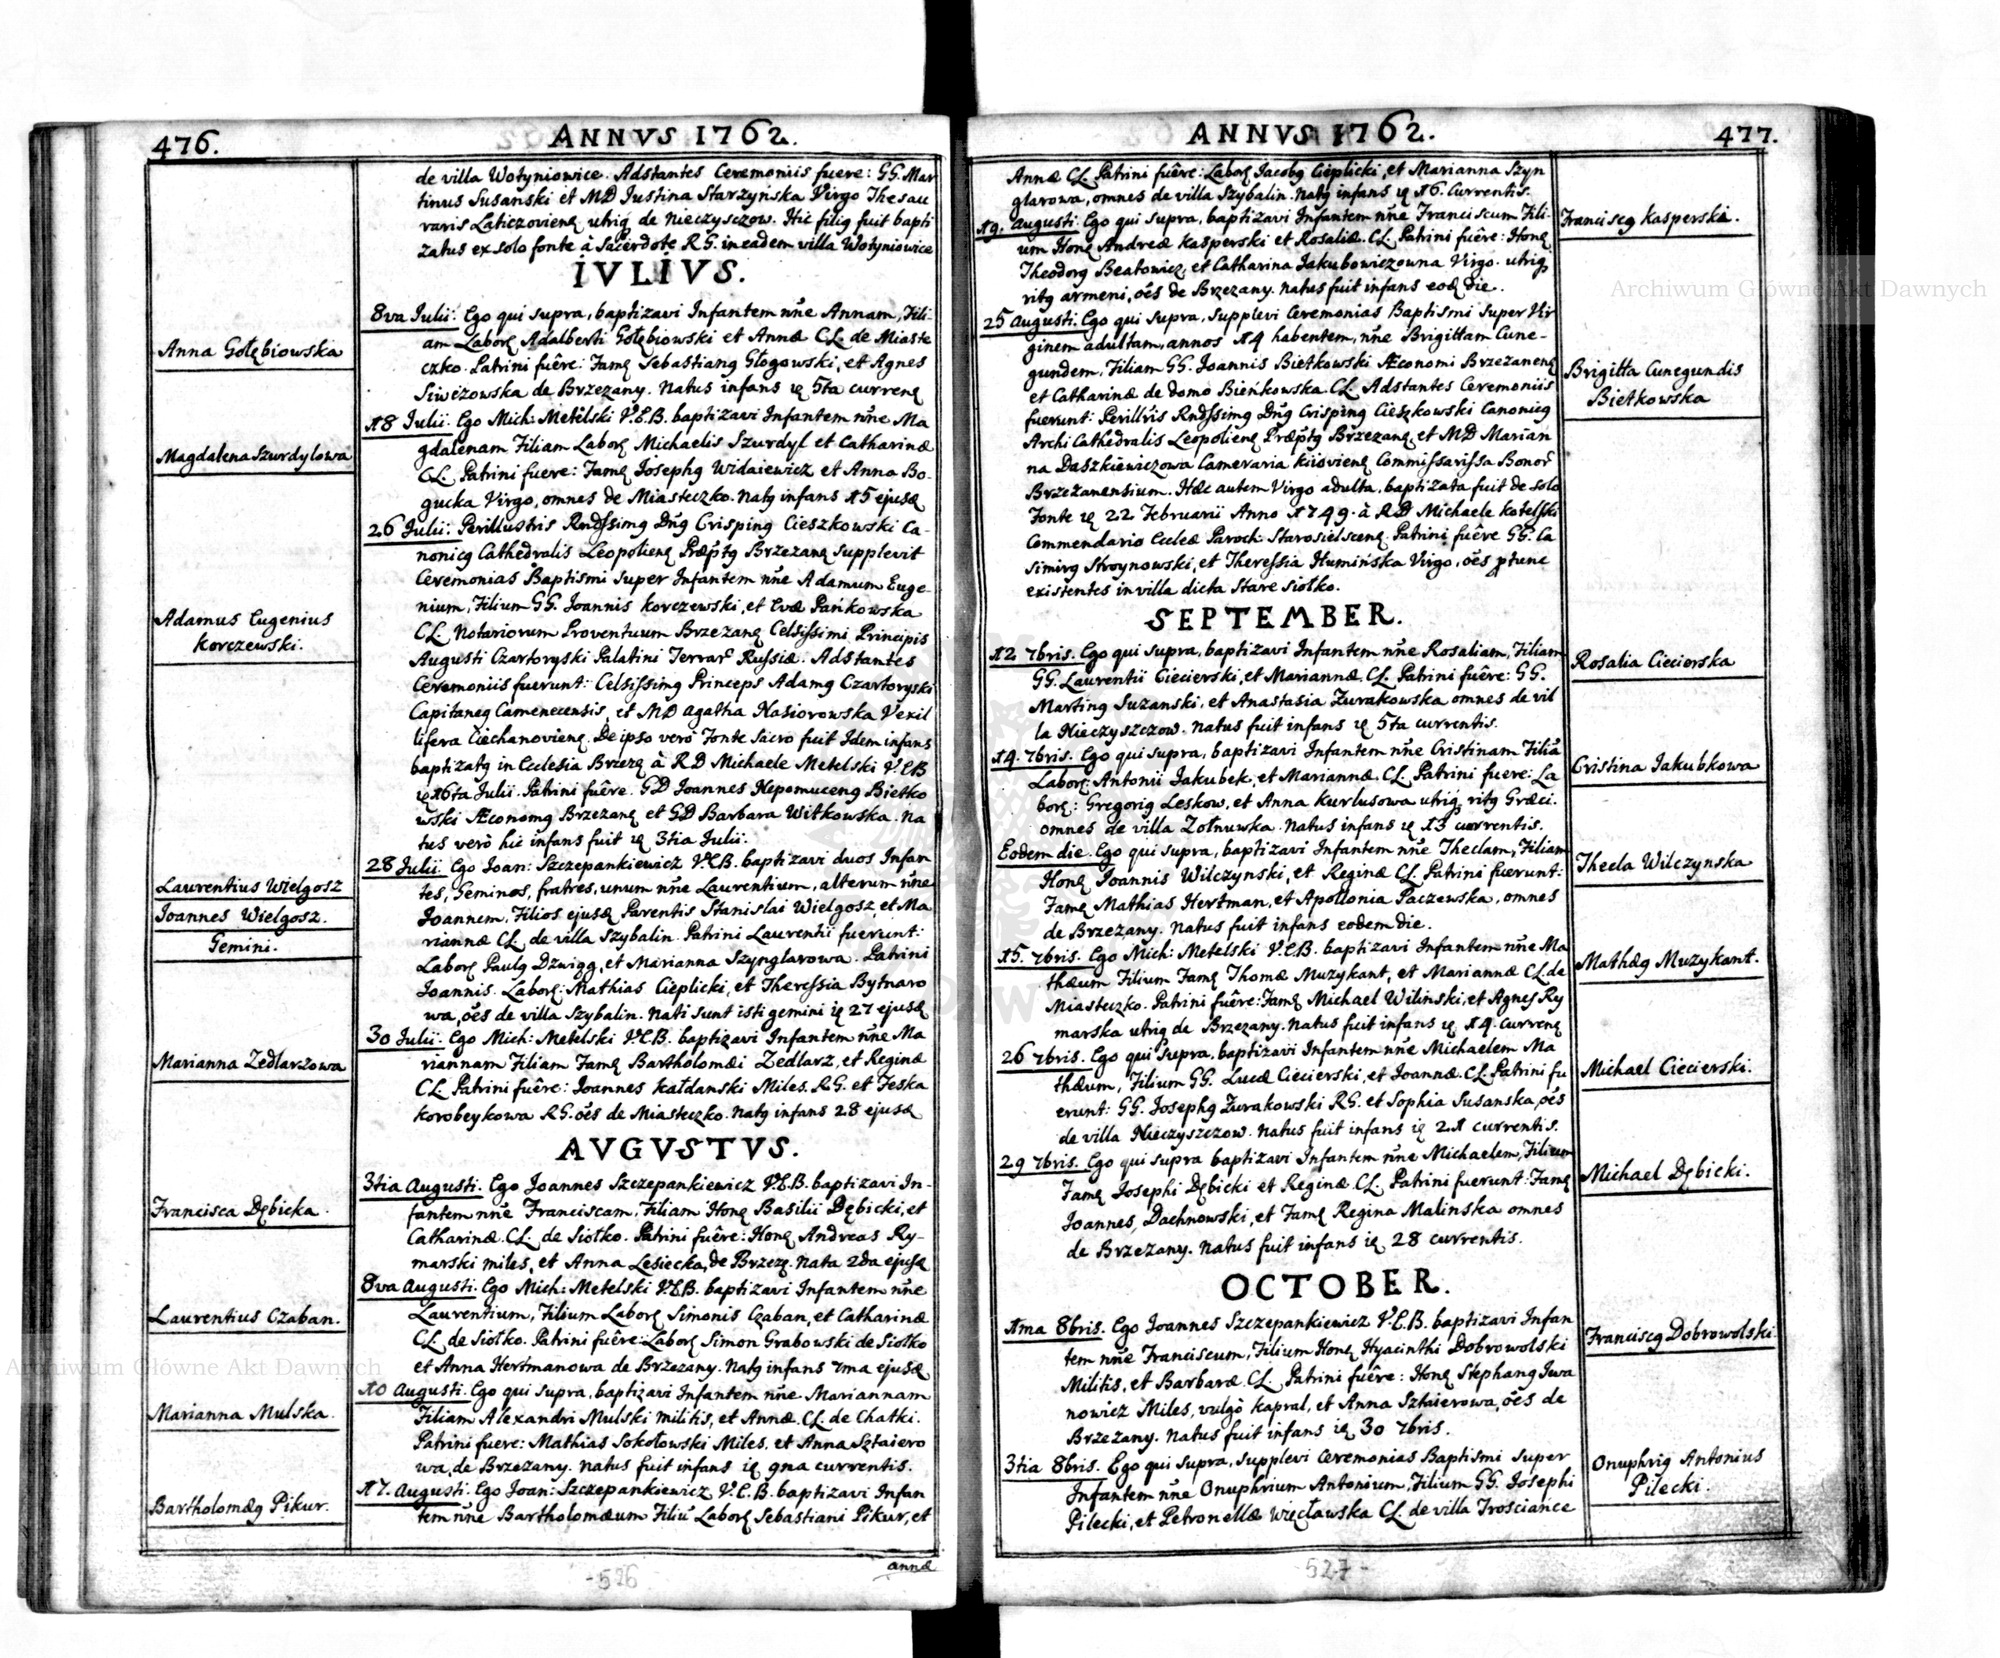 476. ANNVS 1762.
de villa Wotyniowice. Adstantes Ceremoniis fuere: GG. Mar
tinus Susanski et MD Iustina Starzyńska Virgo Thesau
raris Laticzovienę utriq̨ de Nieczyszczow. Hic filiꝯ fuit bapti
zatus ex solo fonte à Sacerdote R.G. in eadem villa Wotyniowice
IVLIVS.
8va Iulii. Ego qui supra, baptizavi Infantem nñe Annam, Fili-
Anna Gołębiowska
am Laborę Adalberti Gołębiowski et Annæ CL. de Miaste
czko. Patrini fuêre: Famę Sebastianꝯ Głogowski, et Agnes
Siwiżowska de Brzezany. Natus infans ię 5ta currenę
18 Iulii. Ego Mich: Metelski V.E.B. baptizavi Infantem nñe Ma
Magdalena Szurdylowa
gdalenam Filiam Laborę Michaelis Szurdyl et Catharinæ
CL. Patrini fuere: Famę Iosephꝯ Widaiewicz et Anna Bo-
gucka Virgo, omnes de Miasteczko. Natꝯ infans 15 ejusę
26 Iulii. Perillustris Rndssimꝯ Dnꝯ Crispinꝯ Cieszkowski Ca-
nonicꝯ Cathedralis Leopolienę Præptꝯ Brzezanę supplevit
Ceremonias Baptismi super Infantem nñe Adamum Euge-
Adamus Eugenius
Korczewski.
nium, Filium GG. Ioannis Korczewski, et Evæ Pańkowska
CL. Notariorum Proventuum Brzezanę Celsissimi Principis
Augusti Czartoryski Palatini Terrar Russiæ. Adstantes
Ceremoniis fuerunt: Celsissimꝯ Princeps Adamꝯ Czartoryski
Capitaneꝯ Camenecensis, et MD Agatha Nasiorowska Vexil
lifera Ciechanovienę. De ipso verò Fonte sacro fuit Idem infans
baptizatꝯ in Ecclesia Brzezę à RD Michaele Metelski V.E.B
ię 16ta Iulii. Patrini fuêre. GD Ioannes Nepomucenꝯ Bietko
wski Æconomꝯ Brzezanę et GD Barbara Witkowska. Na
tus verò hic infans fuit ię 3tia Iulii.
28 Iulii. Ego Ioan: Szczepankiewicz V.E.B. baptizavi duos Infan
Laurentius Wielgosz
tes, Geminos, fratres, unum nñe Laurentium, alterum nñe
Ioannes Wielgosz.
Ioannem, Filios ejusę Parentis Stanislai Wielgosz, et Ma
Gemini.
riannæ CL. de villa Szybalin. Patrini Laurentii fuerunt:
Laborę Paulꝯ Dzwigꝯ, et Marianna Szynglarowa. Patrini
Ioannis. Laborę: Mathias Cieplicki, et Theressia Bytnaro
wa, oẽs de villa Szybalin. Nati sunt isti gemini ię 27 ejusę
30 Iulii. Ego Mich: Metelski V.E.B. baptizavi Infantem nñe Ma
Marianna Zedlarzowa
riannam Filiam Famę Bartholomæi Zedlarz, et Reginæ
CL. Patrini fuêre: Ioannes Kałdanski Miles. R.G. et Feska
Korobeykowa RG. oẽs de Miasteczko. Natꝯ infans 28 ejusę
AVGVSTVS.
3tia Augusti. Ego Ioannes Szczepankiewicz V.E.B. baptizavi In-
Francisca Dębicka.
fantem nñe Franciscam, Filiam Honę Basilii Dębicki, et
Catharinæ. CL. de Siołko. Patrini fuêre: Honę Andreas Ry-
marski miles, et Anna Lesiecka, de Brzezę. Nata 2da ejusę
8va Augusti. Ego Mich: Metelski V.E.B. baptizavi Infantem nñe
Laurentius Czaban.
Laurentium, Filium Laborę Simonis Czaban, et Catharinæ
CL. de Siołko. Patrini fuêre: Laborę Simon Grabowski de Siołko
et Anna Hertmanowa de Brzezany. Natꝯ infans 7ma ejusę
10 Augusti. Ego qui supra, baptizavi Infantem nñe Mariannam
Marianna Mulska.
Filiam Alexandri Mulski militis, et Annæ. CL. de Chatki.
Patrini fuere: Mathias Sokołowski Miles. et Anna Sztaiero
wa, de Brzezany. Natus fuit infans ię 9na currentis.
17. Augusti. Ego Ioan: Szczepankiewicz V.E.B. baptizavi Infan
Bartholomæꝯ Pikur.
tem nñe Bartholomæum Filiũ Laborę Sebastiani Pikur, et
annæ
-526
ANNVS 1762. 477.
Annæ CL. Patrini fuêre: Laborę Iacobꝯ Cieplicki, et Marianna Szyn
glarowa, omnes de villa Szybalin. Natꝯ infans ię 16. Currentis.
19. Augusti. Ego qui supra, baptizavi Infantem nñe Franciscum Fili-
Franciscꝯ Kasperski.
um Honę Andreæ Kasperski et Rosaliæ. CL. Patrini fuêre: Honę
Theodorꝯ Beatowicz, et Catharina Iakubowiczowna Virgo. utriq̨
ritꝯ armeni, oẽs de Brzezany. Natus fuit infans eoę die.
25 Augusti. Ego qui supra, supplevi Ceremonias Baptismi super Vir
ginem adultam, annos 14 habentem, nñe Brigittam Cune-
Brigitta Cunegundis
Bietkowska
gundem, Filiam GG. Ioannis Bietkowski Æconomi Brzezanenę
et Catharinæ de domo Bieńkowska. CL. Adstantes Ceremoniis
fuerunt: Perillris Rndssimꝯ Dnꝯ Crispinꝯ Cieszkowski Canonicꝯ
Archi Cathedralis Leopolienę Præptꝯ Brzezanę, et MD Marian
na Daszkiewiczowa Cameraria Kiiovienę Commissarissa Bonor
Brzezanensium. Hæc autem Virgo adulta, baptizata fuit de solo
Fonte ię 22 Februarii Anno 1749. à RD Michaele Kotelski
Commendario Eccleæ Paroch. Starosielscenę. Patrini fuêre GG. Ca
simirꝯ Stroynowski, et Theressia Humińska Virgo, oẽs ptunc
existentes in villa dicta Stare Siołko.
SEPTEMBER.
12 7bris. Ego qui supra, baptizavi Infantem nñe Rosaliam, Filiam
Rosalia Ciecierska
GG. Laurentii Ciecierski, et Mariannæ. CL. Patrini fuêre: GG.
Martinꝯ Suzanski, et Anastasia Zurakowska omnes de vil
la Nieczyszczow. Natus fuit infans ię 5ta currentis.
14. 7bris. Ego qui supra, baptizavi Infantem nñe Cristinam Filiã
Cristina Iakubkowa
Laborę. Antonii Iakubek, et Mariannæ. CL. Patrini fuere: La
borę: Gregoriꝯ Leskow, et Anna Kurlusowa utriq̨ ritꝯ Græci.
omnes de villa Zołnuwka. Natus infans ię 13 currentis.
Eodem die. Ego qui supra, baptizavi Infantem nñe Theclam, Filiam
Thecla Wilczynska
Honę Ioannis Wilczynski, et Reginæ CL. Patrini fuerunt:
Famę Mathias Hertman, et Apollonia Paczewska, omnes
de Brzezany. Natus fuit infans eodem die.
15. 7bris. Ego Mich: Metelski V.E.B. baptizavi Infantem nñe Ma
Mathæꝯ Muzykant.
thæum Filium Famę Thomæ Muzykant, et Mariannæ CL. de
Miasteczko. Patrini fuêre: Famę Michael Wilinski, et Agnes Ry
marska utriq̨ de Brzezany. Natus fuit infans ię 14. currenę
26 7bris. Ego qui supra, baptizavi Infantem nñe Michaelem Ma
Michael Ciecierski.
thæum, Filium GG. Lucæ Ciecierski, et Ioannæ. CL. Patrini fu
erunt: GG. Iosephꝯ Zurakowski RG. et Sophia Susanska, oẽs
de villa Nieczyszczow. Natus fuit infans ię 21 currentis.
29 7bris. Ego qui supra baptizavi Infantem nñe Michaelem, Filium
Michael Dębicki.
Famę Iosephi Dębicki et Reginæ CL. Patrini fuerunt: Famę
Ioannes, Dachnowski, et Famę Regina Malinska omnes
de Brzezany. Natus fuit infans ię 28 currentis.
OCTOBER.
1ma 8bris. Ego Ioannes Szczepankiewicz V.E.B. baptizavi Infan
Franciscꝯ Dobrowolski.
tem nñe Franciscum, Filium Honę Hyacinthi Dobrowolski
Militis, et Barbaræ. CL. Patrini fuêre: Honę Stephanꝯ Iwa
nowicz Miles, vulgò kapral, et Anna Sztaierowa, oẽs de
Brzezany. Natus fuit infans ię 30 7bris.
3tia 8bris. Ego qui supra, supplevi Ceremonias Baptismi super
Onuphriꝯ Antonius
Pilecki.
Infantem nñe Onuphrium Antonium, Filium GG. Iosephi
Pilecki, et Petronellæ Więcławska CL. de villa Trosciańce
527-
Archiwum Główne Akt Dawnych
Archiwum Główne Akt Dawnych